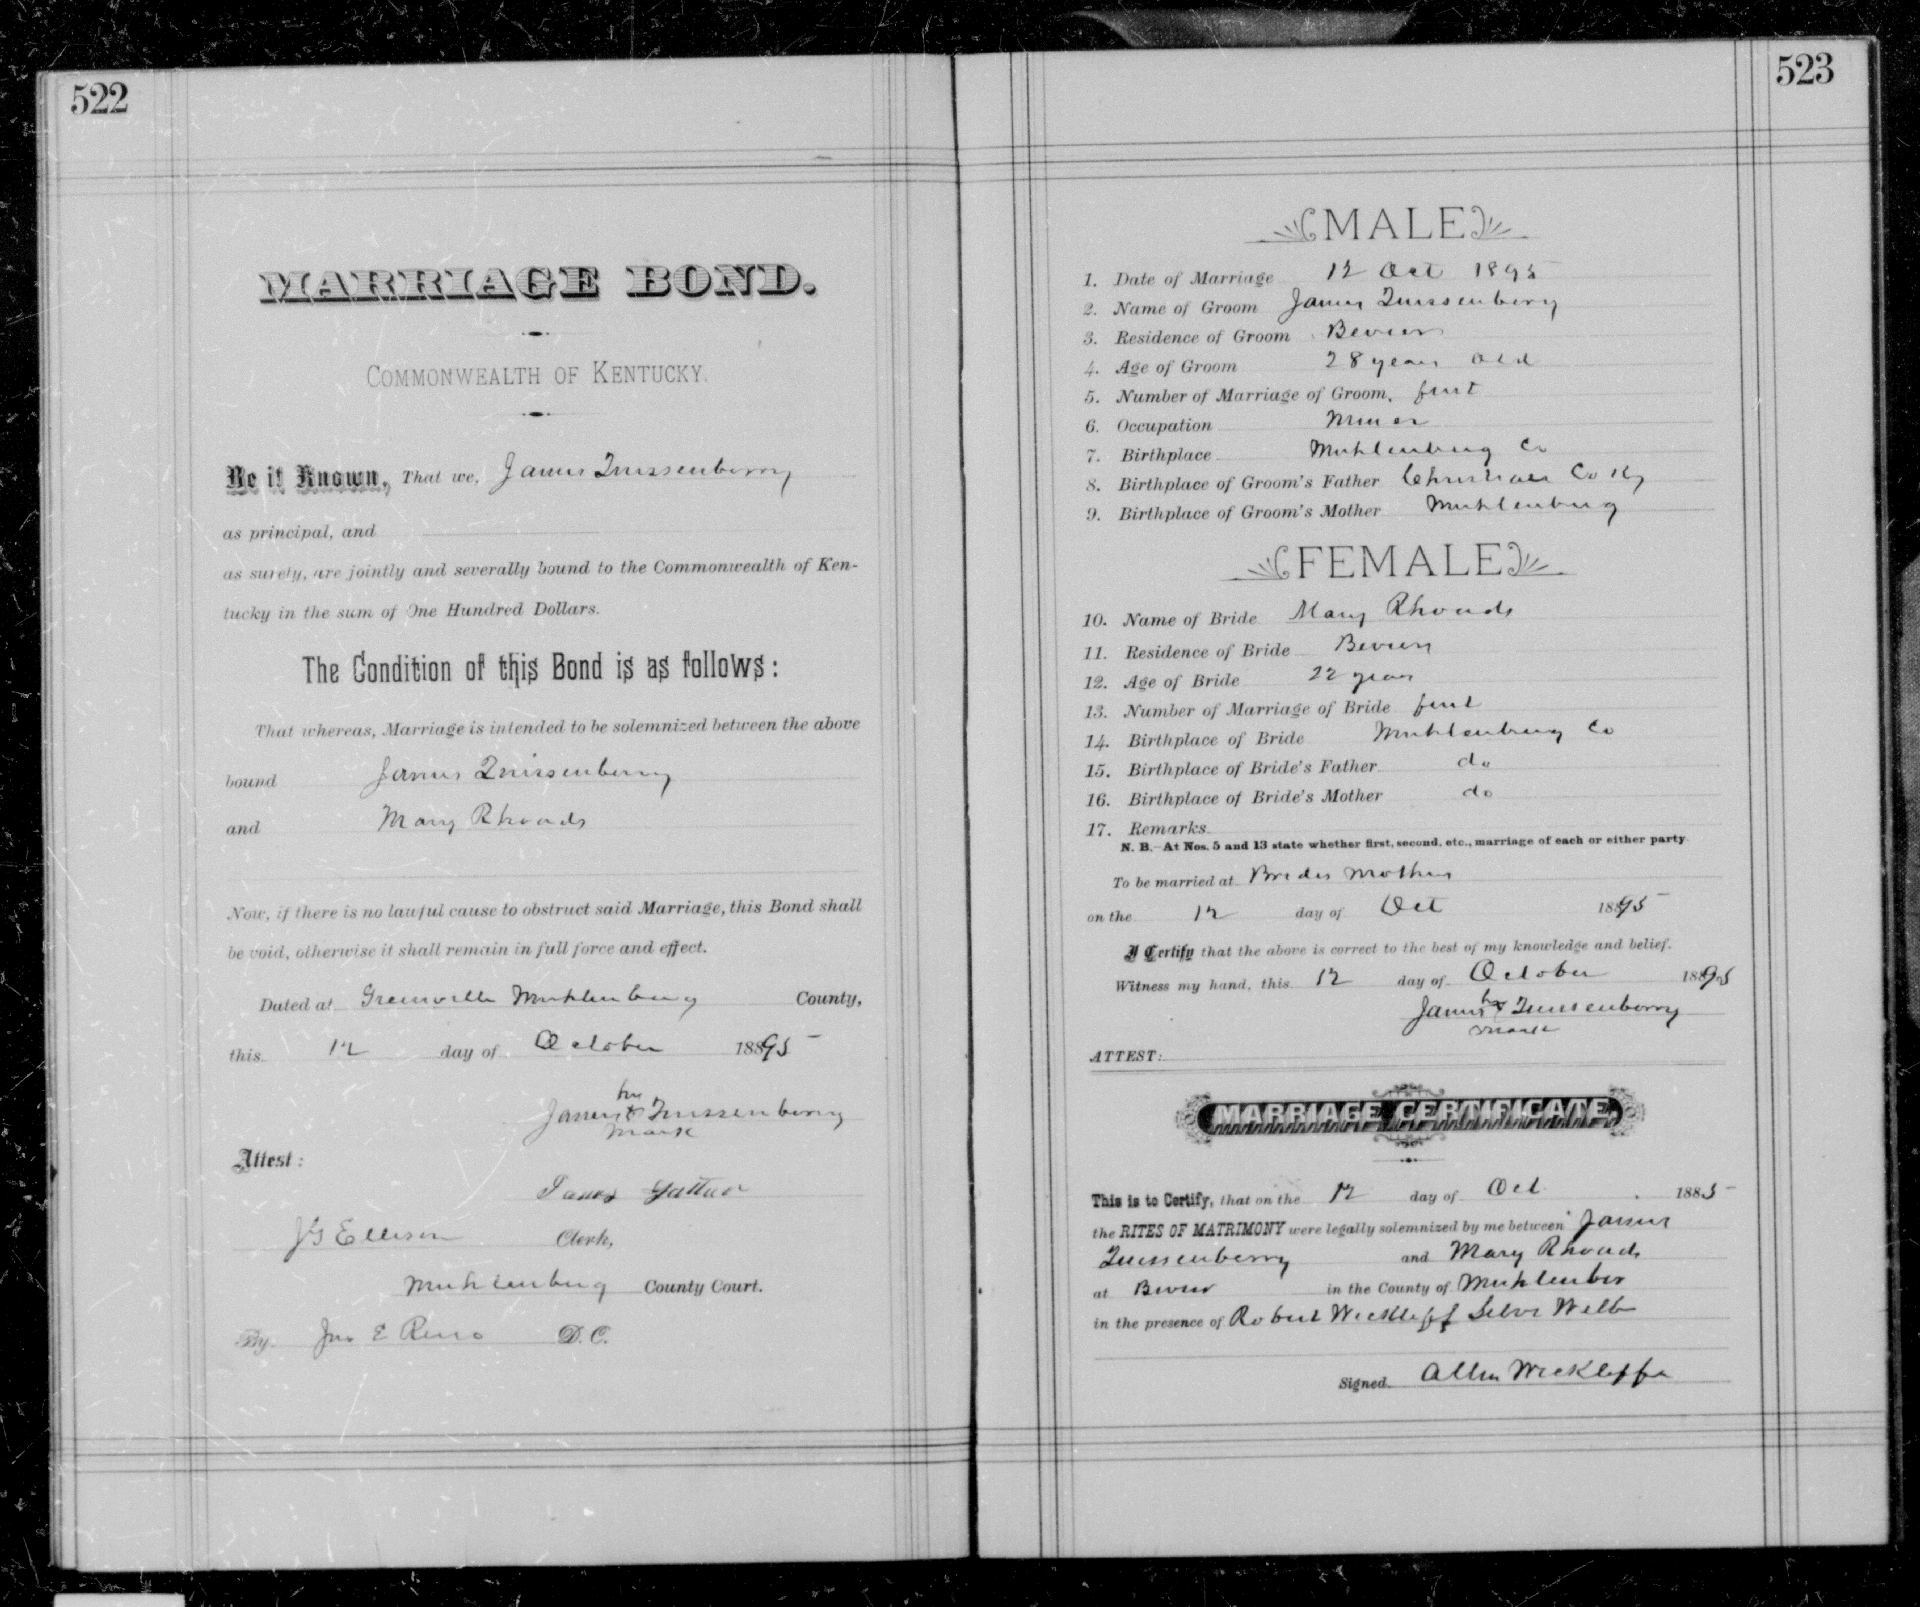 522
MARRIAGE BOND.
COMMONWEALTH OF KENTUCKY.
Be it Known, That we, James Quissenberry
as principal, and
as surety, are jointly and severally bound to the Commonwealth of Ken-
tucky in the sum of One Hundred Dollars.
The Condition of this Bond is as follows:
That whereas, Marriage is intended to be solemnized between the above
bound James Quissenberry
and Mary Rhoads
Now, if there is no lawful cause to obstruct said Marriage, this Bond shall
be void, otherwise it shall remain in full force and effect.
Dated at Greenville Muhlenburg County,
this 12 day of October 1895
his
James x Quissenberry
mark
Attest:
J G Ellison Clerk,
Muhlenburg County Court.
By Jno E Reno D. C.
523
MALE
1. Date of Marriage 12 Oct 1895
2. Name of Groom James Quissenberry
3. Residence of Groom Bevier
4. Age of Groom 28 years old
5. Number of Marriage of Groom, first
6. Occupation Miner
7. Birthplace Muhlenburg Co
8. Birthplace of Groom's Father Christian Co Ky
9. Birthplace of Groom's Mother Muhlenburg
FEMALE
10. Name of Bride Mary Rhoads
11. Residence of Bride Bevier
12. Age of Bride 22 years
13. Number of Marriage of Bride first
14. Birthplace of Bride Muhlenburg Co
15. Birthplace of Bride's Father do
16. Birthplace of Bride's Mother do
17. Remarks
N. B.—At Nos. 5 and 13 state whether first, second, etc., marriage of each or either party
To be married at Brides Mothers
on the 12 day of Oct 1895
I Certify that the above is correct to the best of my knowledge and belief.
Witness my hand, this 12 day of October 1895
his
James x Quissenberry
mark
ATTEST:
MARRIAGE CERTIFICATE.
This is to Certify, that on the 12 day of Oct 1885
the RITES OF MATRIMONY were legally solemnized by me between James
Quissenberry and Mary Rhoads
at Bevier in the County of Muhlenber
in the presence of Robert Wickleff
Signed Allen Wickliffe